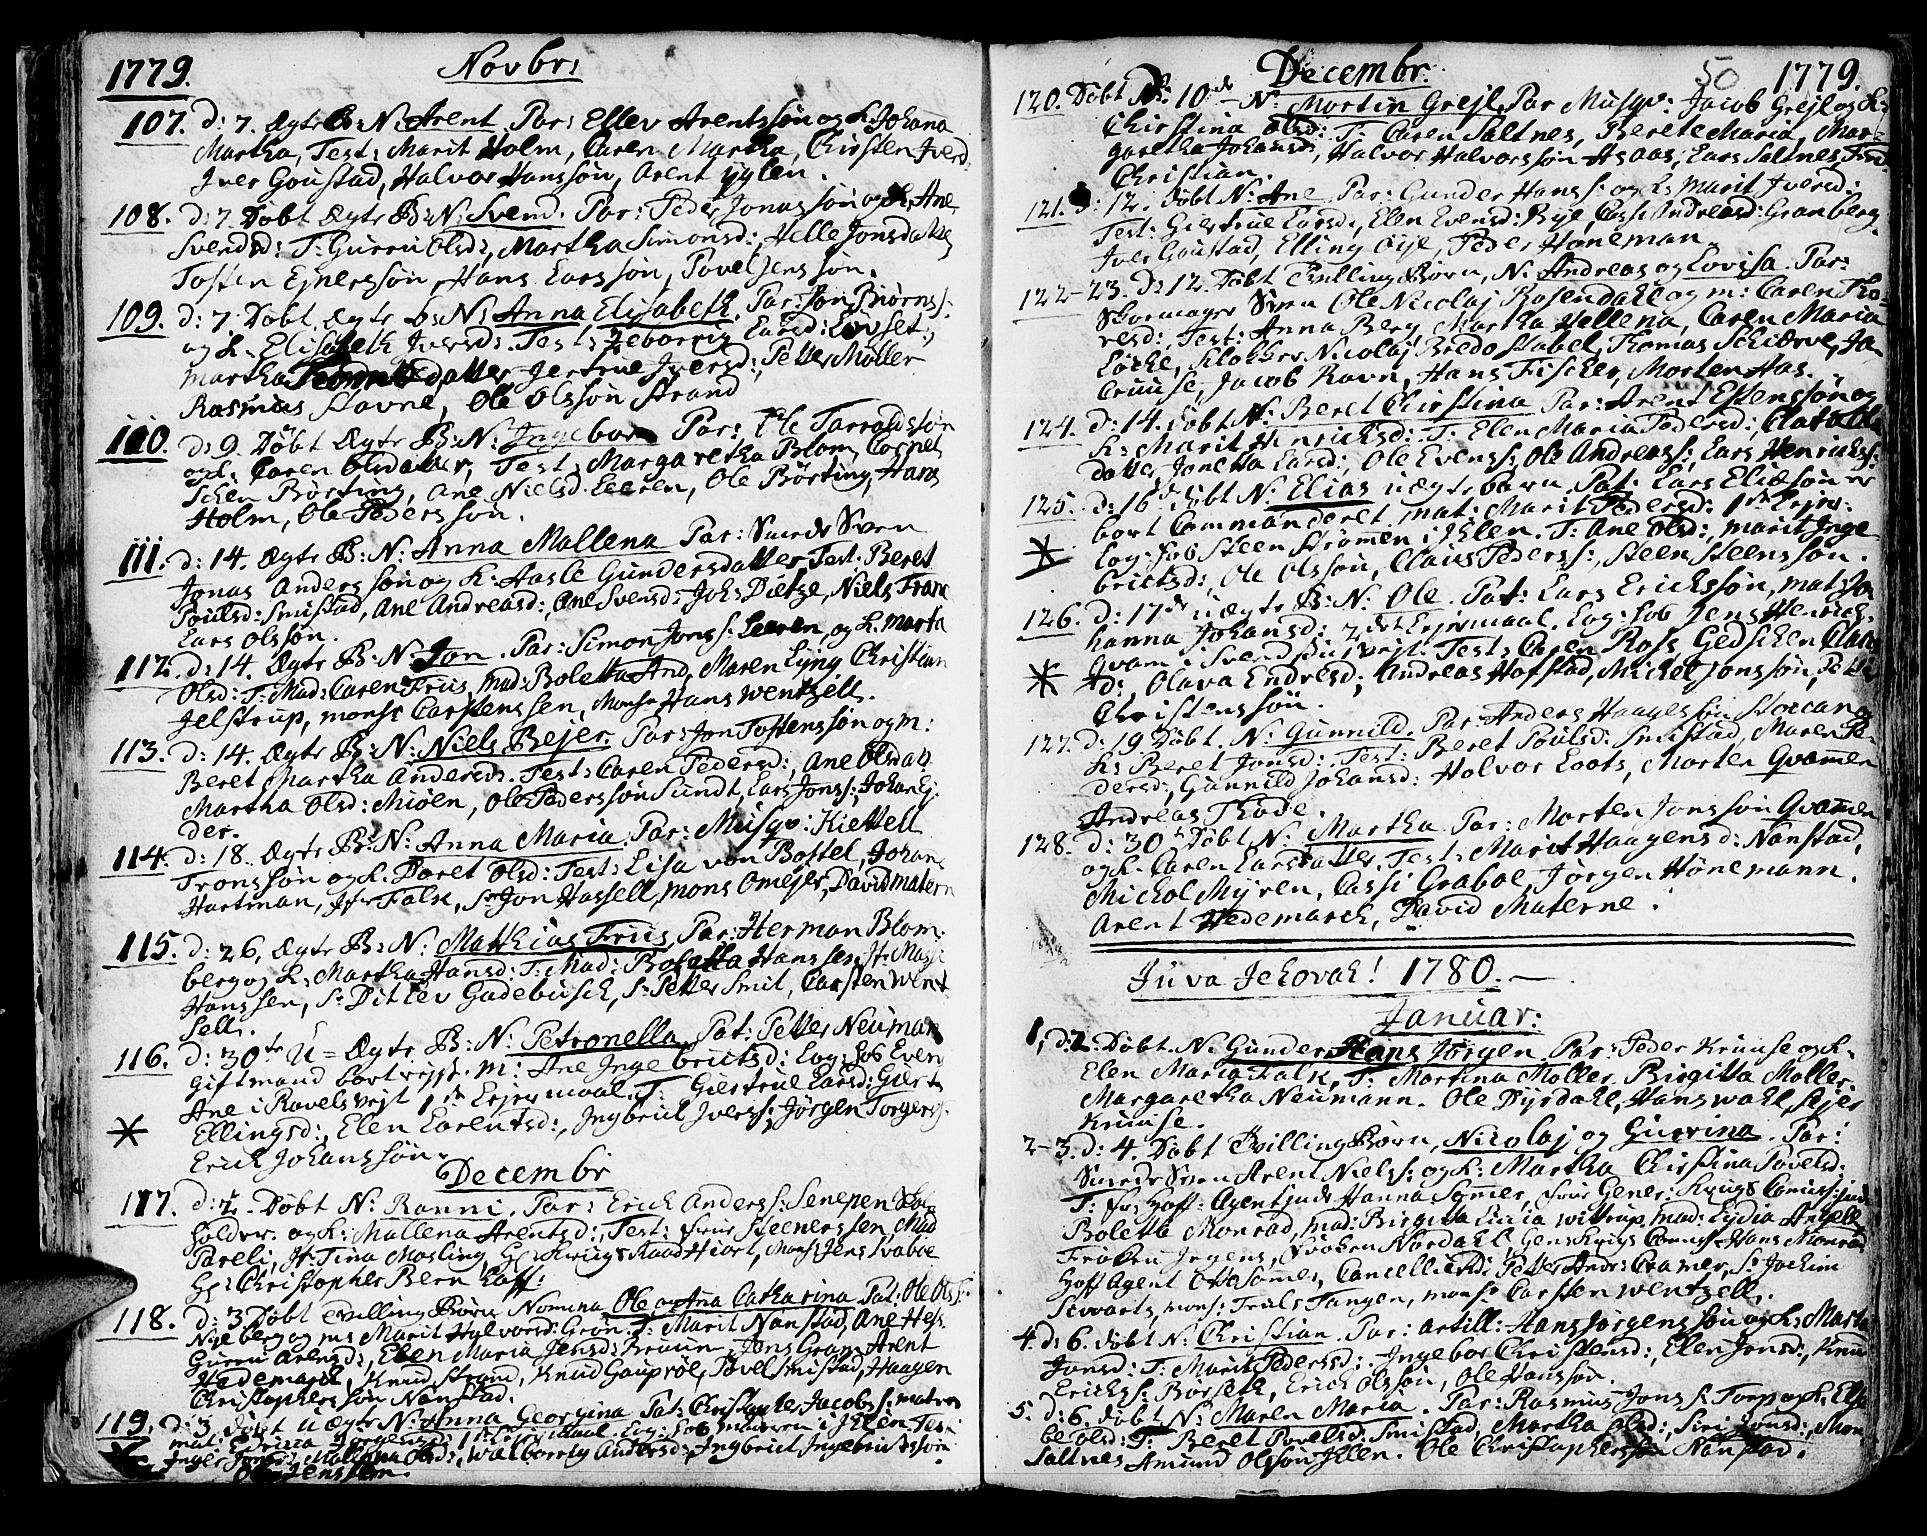 1779. Novbr:
107. d: 7. Ægte B: N: Arent. Par: Ellev Arentssøn og K. Johana
Martha, Test: Marit Holm, Caren Martha, Christen Iversd.
Iver Goustad, Halvor Hanssøn, Arent Yglen.
108. d: 7. Døbt Ægte B: N: Svend. Par: Peder Jonassøn og K. Ane
Svendsd: T: Gurru Olsd:, Martha Simonsd:, Helle Jonsdatter
Tosten Ejnerssøn, Hans Larssøn, Povel Jenssøn.
109. d: 7. Døbt. Ægte B: N: Anna Elisabeth. Par: Jon Biørns:
og K. Elisabeth Iversd: Test: Zeborrig Larsd: Løvset,
Martha datter Jertrue Iversd:, Petter Møller
Rasmus Stavne, Ole Olssøn Strand
110. d: 9. Døbt Ægte B: N: Ingebor Par: Ole Tarraldssøn
og K. Caren Olsdatter, Test: Margaretha Blom, Cornel.
Tchen Børting, Ane Nielsd. Leeren, Ole Børting, Hans
Holm, Ole Pederssøn.
111. d: 14. Ægte B: N: Anna Mallena Par: Smede Sven
Jonas Anderssøn og K. Aasle Gundersdatter, Test: Beret
Poulsd: Smistad, Ane Andreasd:, Ane Svensd:, Joh: Dietze, Niels Fran
Lars Olssøn.
112. d: 14. Ægte B: N: Jon. Par: Simon Jons: Leeren, og K. Marta
Olsd: T: Mad: Caren Friis, Mad: Boletta And, Maren Lyng Christian
Jelstrup, Monsr Carstenssen, Monsr Hans Wentzell.
113. d: 14. Ægte B: N: Niels Bejer. Par: Jon Tostenssøn og m:
Beret Martha Andersd: Test: Caren Pedersd:, Ane Olsdatt
Martha Olsd: Miøen, Ole Pederssøn Sundt, Lars Jons:, Johan Ej-
der.
114. d: 18. Ægte B: N: Anna Maria. Par: Musqv: Kiettell
Tronssøn og K. Daret Olsd: Test: Lisa von Bostel, Johan
Hartman, Jfr Falk, Sr Jon Hassell, Mons Omejer, David Matern
115. d: 26, Ægte B: N: Matthias Friis, Par: Herman Blom-
berg og K. Martha Hansd: T: Mad: Boletta Hanssen, Hr Mass
Hanssen, Sr Ditlev Gadebusch, Sr Petter Smit, Carsten Went-
sell.
116. d: 30te U=Ægte B: N: Petronella. Pat: Petter Neuman
Giftmand bortrejst. M: Ane Inge brictsd: Log: hos Even
Ane i Ravelsvejt 1ste Lejermaal. T: Giertrue Larsd: Giert
Ellingsd:, Elen Larentsd:, Ingbrict Ivers:, Jørgen Torgers:
Erich Johanssøn.
Decembr
117. d: 2. Døbt N: Ranni. Par: Erich Anders: Senepen
holder. og K: Mallena Arentsd:, Test: Frue Steenerssen, Mad
Pareli, Jfr Tina Mosling, Hr Krigs Raad Hiort, Monsr Jens Svaboe
Hr: Christopher Bernhoft:
118. d: 3. Døbt Tvilling Børn Nomina Ole og Ana Catharina Pat: Ole Ols:
Nyeberg og m: Marit Halvorsd: Grøn. T: Marit Nanstad, Ane Hess
Gurru Arensd:, Elen Maria Jensd: Fraun, Jons Gram, Arent
Hedemarck, Knud Strand, Knud Gauprøe, Povel Smistad, Haagen
Christopherssøn Nanstad.
119. d: 3. Døbt U Ægte N: Anna Georgina Pat: Christopher Jacobs: matros
mat: Jørgensd: 1ste Lejermaal. Log: hos Muuren i Ihlen Test:
Inger Jonsd:, Mallena Olsd:, Walborrig Andersd:, Ingbrict Ingebrictssøn.
Ole Jenssøn.
Decembr. 50 1779.
120. Døbt d: 10de N: Morten Grejl, Par Musqv: Jacob Grejl og K:
Christina Olsd: T: Caren Saltnes, Berete Maria, Mar-
garetha Johansd:, Halvor Halvorssøn Aas, Lars Saltnes, Fred
Christian.
121. d: 12. Døbt N: Ane Par: Gunder Hans: og K: Marit Iversd:
Test: Giertrue Larsd:, Elen Evensd: Bye, Cassi Andreasd: Granberg
Iver Goustad, Elling Øye, Peder Høneman.
122-23. D: 12. Døbt Tvilling Børn, N: Andreas og Lovisa. Par:
Skomager Sven Ole Nicolaj Rosendahl og m: Caren Tho-
resd:, Test: Anna Berg, Martha Hellena, Caren Maria
Løcke, Klokker Nicolaj Bredo Stabel, Thomas Schiærve, Ja-
Cruuse, Jacob Ravn, Hans Fischer, Morten Aas.
124. d: 14. Døbt N: Beret Christina Par: Arent Estenssøn og
K: Marit Henrichsd: T: Elen Maria Pedersd:, Clara Ols
datter, Jonetta Larsd:, Ole Evens:, Ole Andreass:, Lars Henrichs:
125. d: 16de Døbt N: Elias uægte barn. Pat: Lars Eliæsøn er
bort Commanderet. mat: Marit Pedersd: 1ste Lejer:
Log: hos Steen Strømen i Ihlen. T: Ane Olsd:, Marit Inge
brictsd:, Ole Olssøn, Claus Peders:, Steen Steenssøn.
126. d: 17de uægte B: N: Ole. Pat: Lars Erichssøn, mat: Jo
hanna Johansd: 2det Lejermaal. Log: hos Jens Henrich
Qvam i Svendshuusvejt. Test: Caren Ross Gedschen Claus
d:, Olava Endresd:, Andreas Hofstad, Michel Jonssøn, Petter
Christenssøn.
127. d: 19 Døbt. N: Gunnild. Par: Anders Haagessøn Storcan og
K: Beret Jonsd: Test: Beret Poulsd: Smistad, Maren Pe-
dersd:, Gunnild Johansd: Halvor Loots, Morten Qvammen
Andreas Thode.
128. d: 30te Døbt N: Martha. Par: Morten Jonssøn Qvammen
og K. Caren Larsdatter. Test: Marit Haagensd: Nanstad,
Michol Myren, Cassi Graboe, Jørgen Hønemann.
Arent Hedemarck, David Materne.
Juva Jehovah! 1780.
Januar:
1, d: 2. Døbt. N: Gunder Hans Jørgen. Par: Peder Kruuse og K.
Elen Maria Falk, T: Martina Møller. Birgitta Møller.
Margaretha Neumann. Ole Dyrdahl, Hans Wahl, Ejer
Kruuse.
2-3. d: 4. Døbt Tvilling Børn, Nicolaj og Guurina. Par:
Smede Sven Arent Niels: og K: Martha Christina Povelsd:
T: Fr: Hoff: Agentinde Hanna Sommer, Frue Gener: Krigs Comiss:inde
Boletta Monrad, Mad: Birgitta Lucia Wittrup, Mad: Lydia Angell
Frøken Irgens, Frøken Nordahl, Gener: Krigs Comiss: Hans Monrad
Hoff Agent Otto Sømer, Cancellieraad Petter Andr: Cramer, Sr Jochim
Swarts, Monsr: Truls Tangen, Monsr Carsten Wentzell.
4. d: 6. Døbt N: Christian. Par: Artill: Hans Jørgenssøn og K: Marta
Jonsd: T: Marit Pedersd:. Ingebor Christensd:, Elen Jonsd:, Knud
Erichs: Borseth, Erich Olssøn, Ole Hanssøn.
5. d: 6. Døbt N: Maren Maria. Par: Rasmus Jons: Torp og K. Elsa
be Olsd: T: Beret Povelsd: Smistad, Martha Olsd:, Siri Jonsd:, Mons
Saltnes Amund Olssøn Ihlen. Ole Christopherssøn Nanstad.